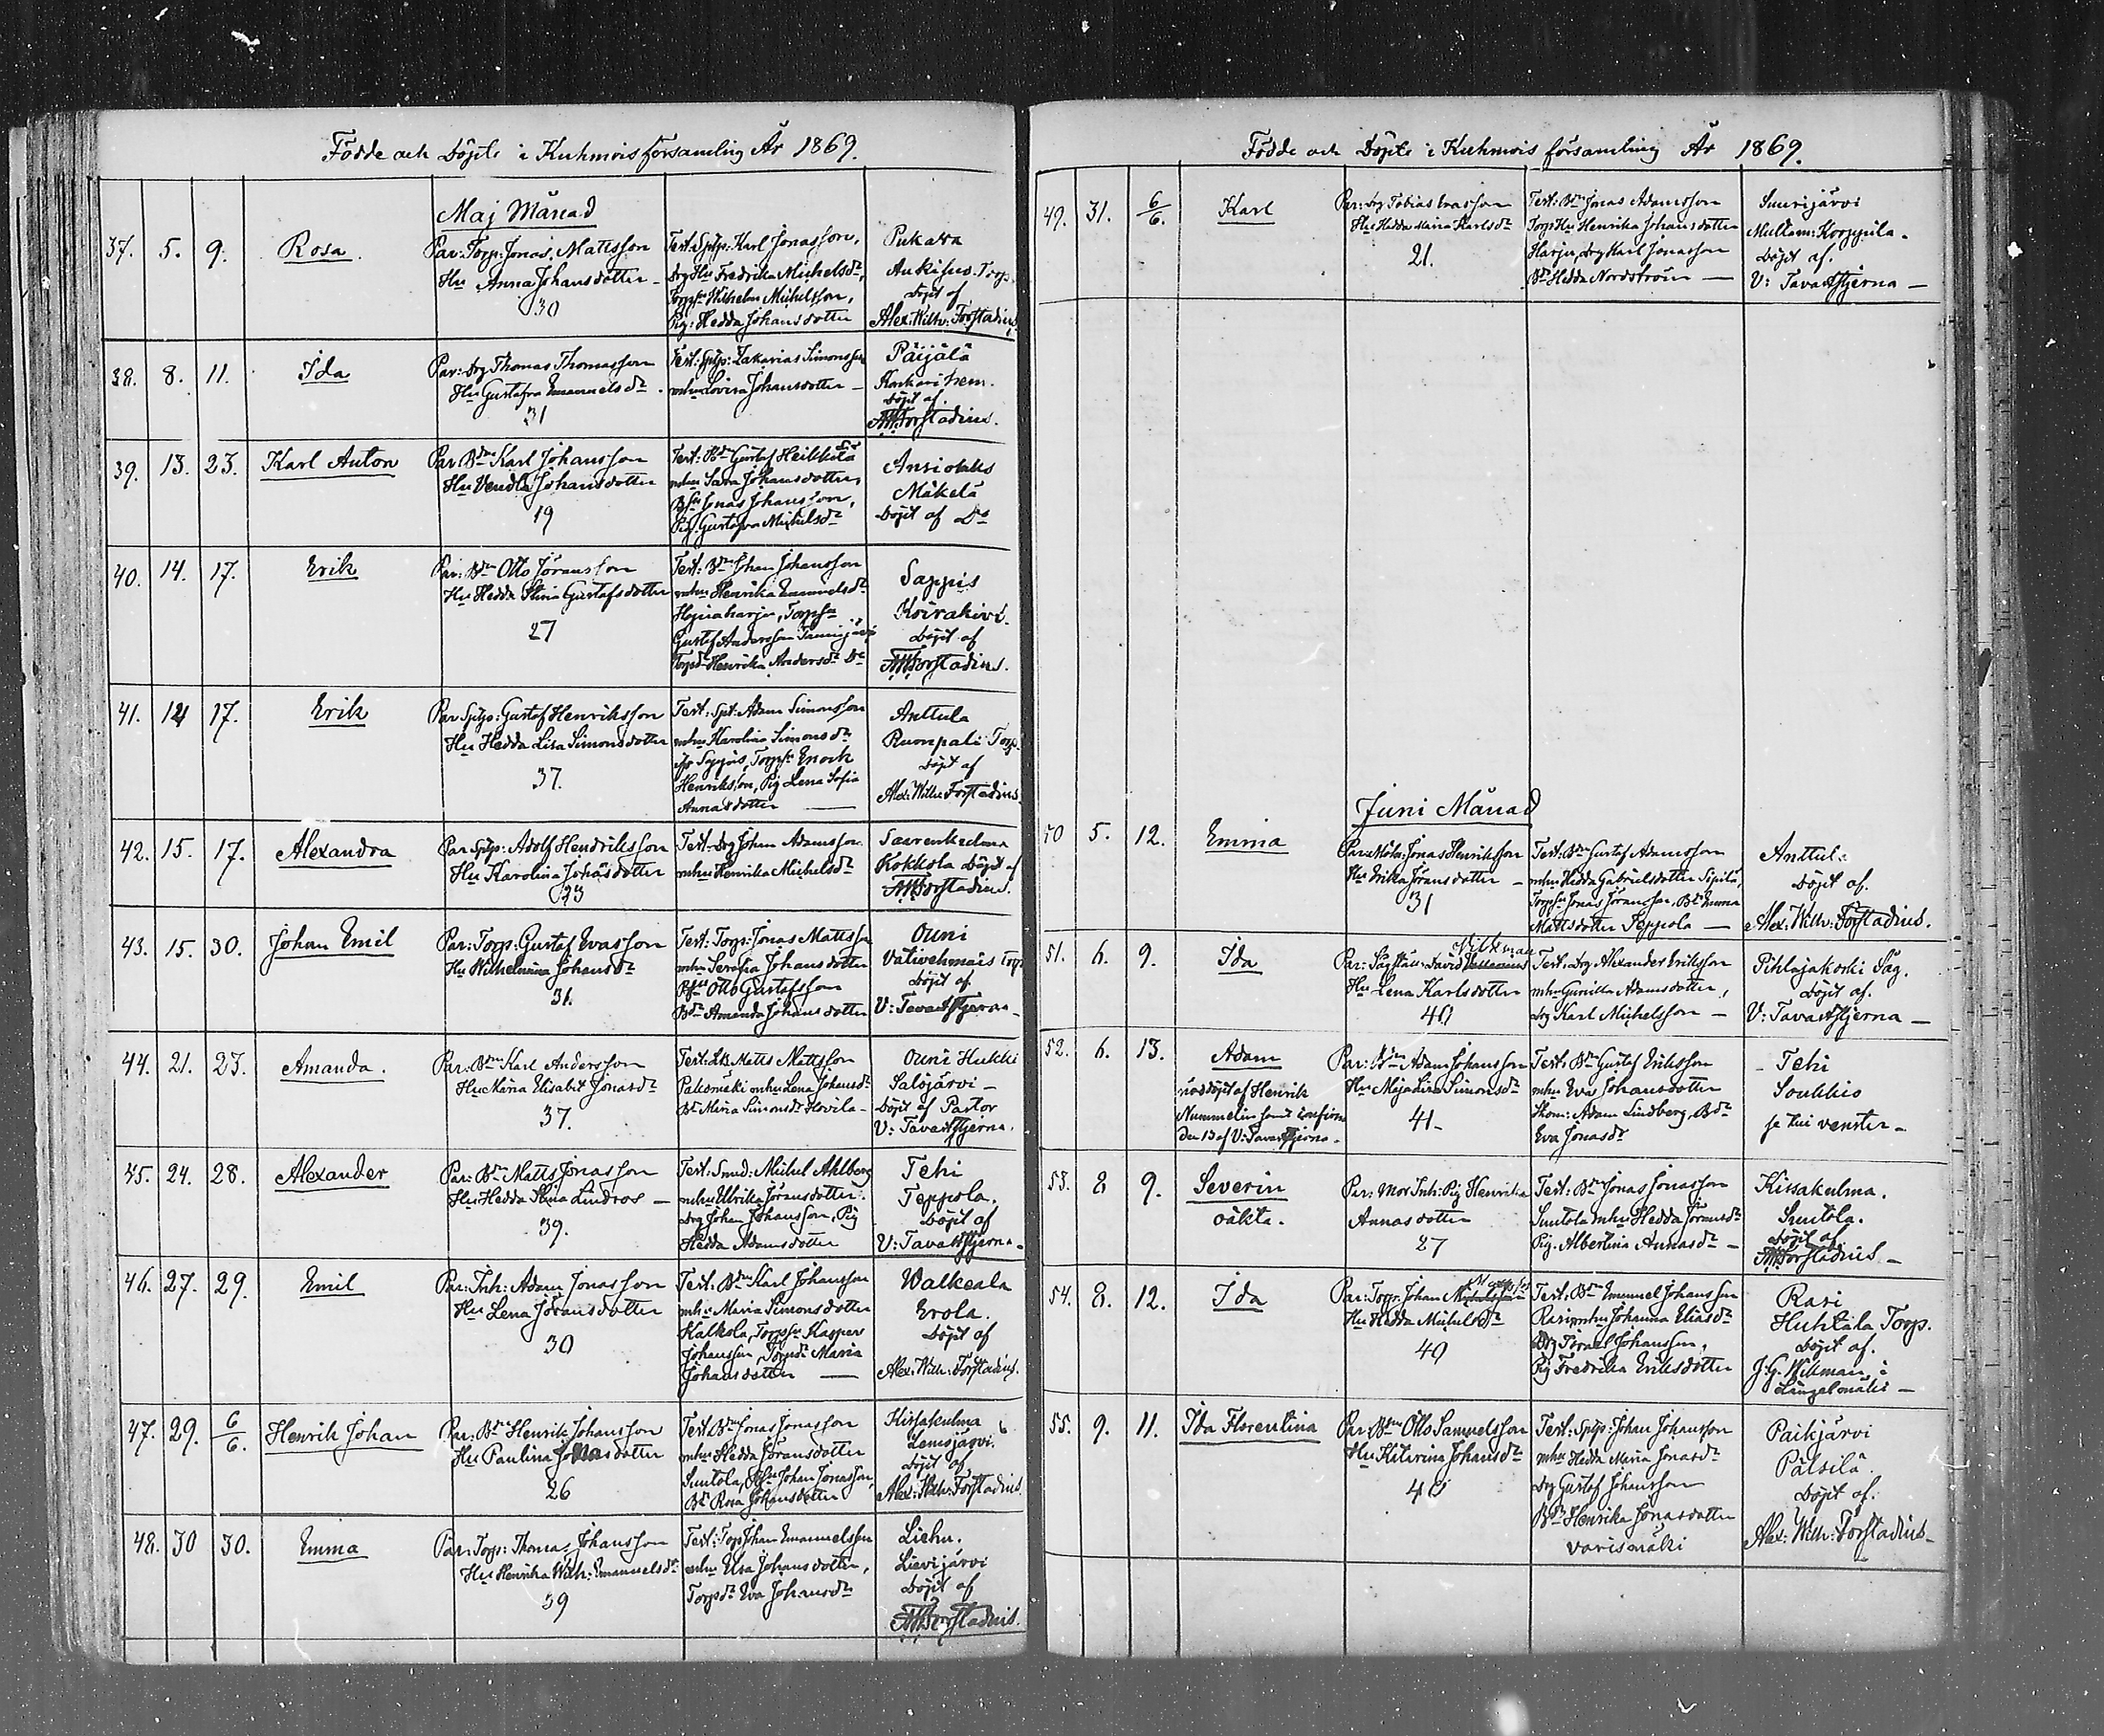 Födde och Döpte i Kuhmois församling År 1869.
Maj Månad
37. 5. 9. Rosa.
Par: Torp: Jonas Mattsson
Hu Anna Johansdotter
30
Test: Sytp: Karl Jonasson,
Drg Hu Fredrika Michelsdr,
Torpsn Wilhelm Michelsson,
Pig: Hedda Johansdotter
Pukara
Torp.
Döpt af
Alex: Wilh: Forstadius
38. 8. 11. Ida
Par: Drg Thomas Thomasson
Hu Gustafva Emanuelsdr
31
Test: Sytp: Zakarias Simonsson
mhu Lovisa Johansdotter
Päijälä
hem.
Döpt af.
AWForstadius.
39. 13. 23. Karl Anton
Par Bdn Karl Johansson
Hu Vendla Johansdotter
19
Test: Bdn Gustaf Heikkilä
mhu Sara Johansdotter,
Bsn Jonas Johansson,
Pig. Gustafva Michelsdr
Mäkelä
Döpt af Do
40. 14. 17. Erik
Par: Bdn Otto Jöransson
Hu Hedda Stina Gustafsdotter
27
Test: Bdn Johan Johansson
mhu Henrika Emanuelsdr
Torpsn
Gustaf Andersson
Torpdr Henrika Andersdr Do
Sappis
Koirakivi.
Döpt af
AWForstadius.
41. 14 17. Erik
Par Sytp: Gustaf Henriksson
Hu Hedda Lisa Simonsdotter
37.
Test: Spt: Adam Simonsson
mhu Karolina Simonsdr
Torpsn Enok
Henriksson, Pig Lena Sofia
Annasdotter
Anttula
Ruonpali Torp
Döpt af
Alex: Wilh: Forstadius
42. 15. 17. Alexandra
Par Sytp: Adolf Hendriksson
Hu Karolina Johansdotter
23
Test: Drg Johan Adamsson
mhu Henrika Michelsdr
Saarenkulma
Kokkola Döpt af
AWForstadius.
43. 15. 30. Johan Emil
Par: Torp: Gustaf Evasson
Hu Wilhelmina Johansdr
31.
Test: Torp: Jonas Mattsson
mhu Serafia Johansdotter
Bsn Otto Gustafsson
Bdr Amanda Johansdotter
Ouni
Torp
Döpt af
V: Tavaststjerna
44. 21. 23. Amanda.
Par: Bdn Karl Andersson
Hu Maria Elisabet Jonasdr
37.
Matts Mattsson
mhu Lena Johansdr
Bdr Maria Simonsdr Hovila
Ouni Hukki
Salojärvi
Döpt af Pastor
V: Tavaststjerna.
45. 24. 28. Alexander
Par: Bdn Matts Jonasson
Hu Hedda Stina Lindroos
39.
Test: Smed: Michel Ahlberg
mhu Ulrika Jöransdotter.
Drg Johan Johansson, Pig
Hedda Adamsdotter
Tehi
Teppola.
Döpt af
V: Tavaststjerna
46. 27. 29. Emil
Par: Inh: Adam Jonasson
Hu Lena Jöransdotter
30
Test: Bdn Karl Johansson
mhu Maria Simonsdotter
Kalkola, Torpsn Kasper
Johansson, Torpdr Maria
Johansdotter
Walkeala
Erola.
Döpt af
Alex: Wilh: Forstadius.
47. 29. 6/6. Henrik Johan
Par: Bdn Henrik Johansson
Hu Paulina Jonasdotter
26
Test: Bdn Jonas Jonasson
mhu Hedda Jöransdotter
Suutola, Bsn Johan Jonasson,
Bdr Rosa Johansdotter
Kissakulma
Lemsjärvi.
Döpt af
Alex: Wilh: Forstadius.
48. 30 30. Emma
Par: Torp: Thomas Johansson
Hu Henrika Wilh: Emanuelsdr
39
Test: Torp Johan Emanuelsson
mhu Elsa Johansdotter,
Torpdr Eva Johansdr
Liehu.
Lievijärvi
Döpt af
AWForstadius.
Födde och Döpte i Kuhmois församling År 1869.
49. 31. 6/6. Karl
Par: Drg Tobias Evasson
Hu Hedda Maria Karlsdr
21.
Test: Bdn Jonas Adamsson
Torp Hu Henrika Johansdotter
Harju, Drg Karl Jonasson
Bdr Hedda Nordström
Suurijärvi
Korppila.
Döpt af.
V: Tavaststjerna
Juni Månad
50 5. 12. Emma
Jonas Henriksson
Hu Erika Jöransdotter
31
Test: Bdn Gustaf Adamsson
mhu Hedda Gabrielsdotter Sipilä,
Torpsn Jonas Jöransson, Bdr Emma
Mattsdotter Seppola
Anttula
Döpt af.
Alex: Wilh: Forstadius.
51. 6. 9. Ida
Willman
Par: David
Hu Lena Karlsdotter
40
Test: Drg Alexander Eriksson
mhu Gunilla Adamsdotter,
Drg Karl Michelsson
Pihlajakoski Såg.
Döpt af.
V: Tavaststjerna
52. 6. 13. Adam
nöddöpt af Henrik
Nummelin samt
den 13 af V: Tavaststjerna.
Par: Bdn Adam Johansson
Hu Maja Lisa Simonsdr
41
Test: Bdn Gustaf Eriksson
mhu Eva Johansdotter
Skom: Adam Lindberg, Bdr
Eva Jonasdr
Tehi
Soukkio
se till venster
53. 8 9. Severin
oäkta.
Par: Mor Inh: Pig Henrika
Annasdotter
27
Test: Bdn Jonas Jonasson
Suutola mhu Hedda Jöransdr
Pig. Albertina Annasdr
Kissakulma.
Suutola.
Döpt af
AWForstadius
54. 8. 12. Ida
Par: Torp: Johan
Hu Hedda Michelsdr
40
Test: Bdn Emanuel Johansson
Rasi mhu Johanna Eliasdr
Drg Johansson,
Pig Fredrika Eriksdotter
Rasi
Huhtala Torp.
Döpt af.
J. G. Willman i
Längelmäki
55. 9. 11. Ida Florentina
Par: Bdn Otto Samuelsson
Hu Katarina Johansdr
40
Test: Sytp: Johan Johansson
mhu Hedda Maria Jonasdr
Drg Gustaf Johansson
Bdr Henrika Jonasdotter
Varismäki
Päikjärvi
Pälsilä.
Döpt af.
Alex: Wilh: Forstadius